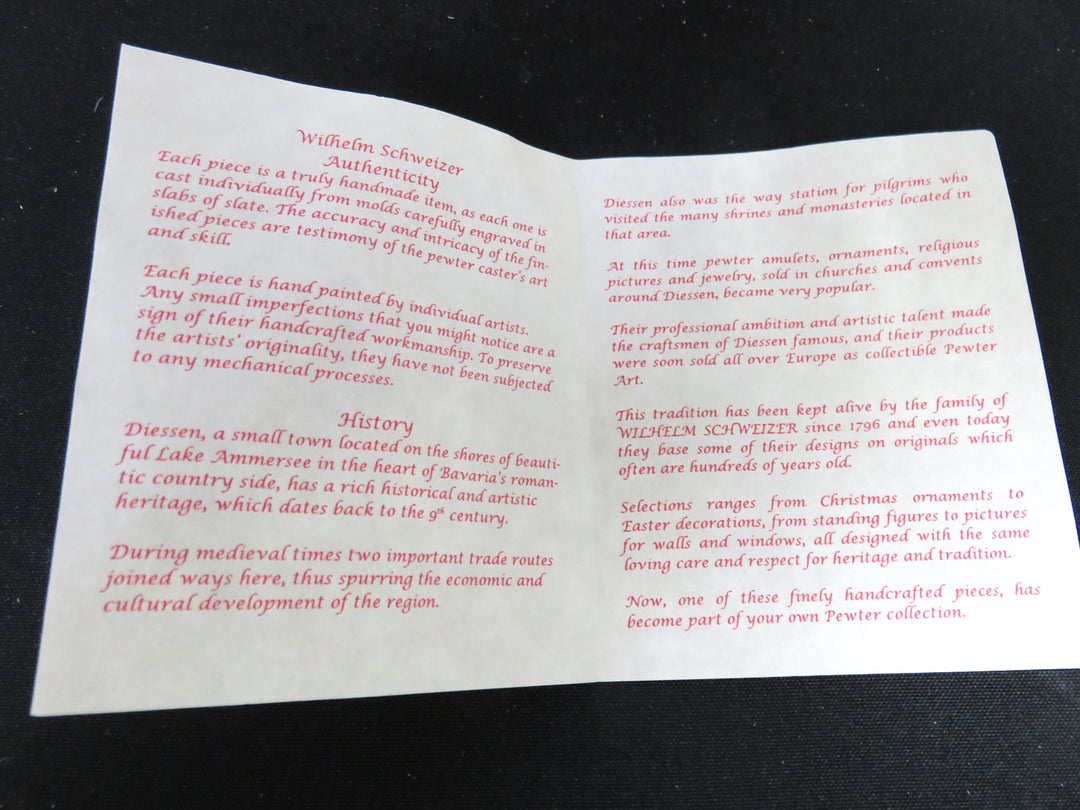 Wilhelm Schweizer
Authenticity
Each piece is a truly handmade item, as each one is
cast individually from molds carefully engraved in
slabs of slate. The accuracy and intricacy of the fin-
ished pieces are testimony of the pewter caster's art
and skill.
Each piece is hand painted by individual artists.
Any small imperfections that you might notice are a
sign of their handcrafted workmanship. To preserve
the artists' originality, they have not been subjected
to any mechanical processes.
History
Diessen, a small town located on the shores of beauti-
ful Lake Ammersee in the heart of Bavaria's roman-
tic country side, has a rich historical and artistic
heritage, which dates back to the 9th century.
During medieval times two important trade routes
joined ways here, thus spurring the economic and
cultural development of the region.
Diessen also was the way station for pilgrims who
visited the many shrines and monasteries located in
that area.
At this time pewter amulets, ornaments, religious
pictures and jewelry, sold in churches and convents
around Diessen, became very popular.
Their professional ambition and artistic talent made
the craftsmen of Diessen famous, and their products
were soon sold all over Europe as collectible Pewter
Art.
This tradition has been kept alive by the family of
WILHELM SCHWEIZER since 1796 and even today
they base some of their designs on originals which
often are hundreds of years old.
Selections ranges from Christmas ornaments to
Easter decorations, from standing figures to pictures
for walls and windows, all designed with the same
loving care and respect for heritage and tradition.
Now, one of these finely handcrafted pieces, has
become part of your own Pewter collection.